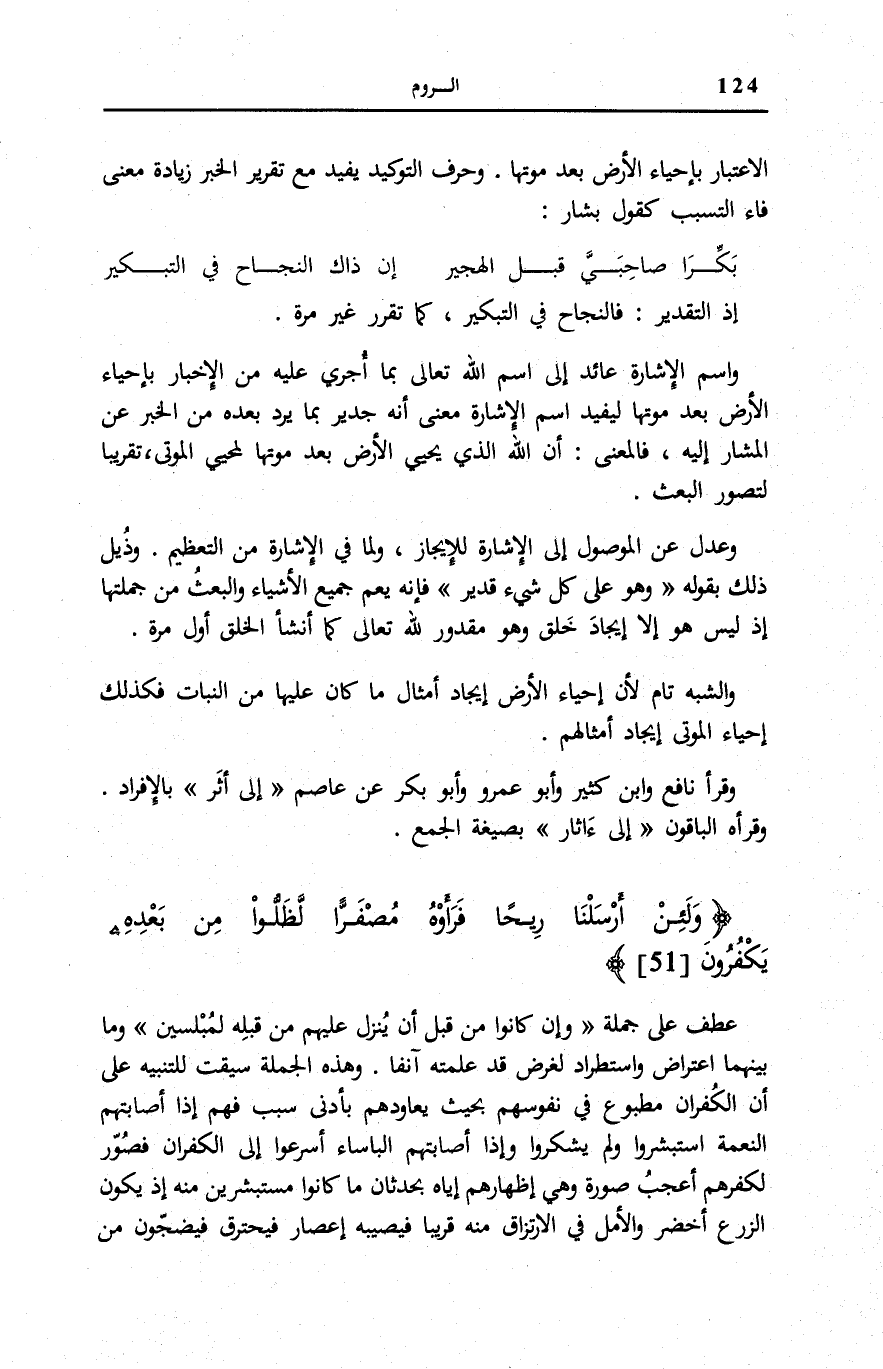 124
الـــروم
الاعتبار بإحياء الأرض بعد موتها . وحرف التوكيد يفيد مع تقرير الخبر زيادة معنى
فاء التسبب كقول بشار :
بَكِّـــرَا صاحِبَـــيَّ قبـــل الهجير إن ذاك النجـــاح في التبـــكير
إذ التقدير : فالنجاح في التبكير ، كما تقرر غير مرة .
واسم الإشارة عائد إلى اسم الله تعالى بما أُجري عليه من الإخبار بإحياء
الأرض بعد موتها ليفيد اسم الإشارة معنى أنه جدير بما يرد بعده من الخبر عن
المشار إليه ، فالمعنى : أن الله الذي يحيي الأرض بعد موتها لمحيي الموتى ، تقريبا
لتصور البعث .
وعدل عن الموصول إلى الإشارة للإيجاز ، ولما في الإشارة من التعظيم . وذُيل
ذلك بقوله « وهو على كل شيء قدير » فإنه يعم جميع الأشياء والبعثُ من جملتها
إذ ليس هو إلا إيجادَ خَلق وهو مقدور لله تعالى كما أنشأ الخلق أول مرة .
والشبه تام لأن إحياء الأرض إيجاد أمثال ما كان عليها من النبات فكذلك
إحياء الموتى إيجاد أمثالهم .
وقرأ نافع وابن كثير وأبو عمرو وأبو بكر عن عاصم « إلى أثَر » بالإفراد .
وقرأه الباقون « إلى ءَاثار » بصيغة الجمع .
﴿ وَلَئِـنْ أَرْسَلْنَا رِيـحًا فَرَأَوْهُ مُصْفَـرًّا لَّظَلُّـواْ مِن بَعْدِهِۦ
يَكْفُرُونَ [51] ﴾
عطف على جملة « وإن كانوا من قبل أن يُنزل عليهم من قبلِه لمُبْلسين » وما
بينهما اعتراض واستطراد لغرض قد علمته آنفا . وهذه الجملة سيقت للتنبيه على
أن الكُفران مطبوع في نفوسهم بحيث يعاودهم بأدنى سبب فهم إذا أصابتهم
النعمة استبشروا ولم يشكروا وإذا أصابتهم الباساء أسرعوا إلى الكفران فصُوّر
لكفرهم أعجبُ صورة وهي إظهارهم إياه بحدثان ما كانوا مستبشرين منه إذ يكون
الزرع أخضر والأمل في الارتزاق منه قريبا فيصيبه إعصار فيحترق فيضجّون من